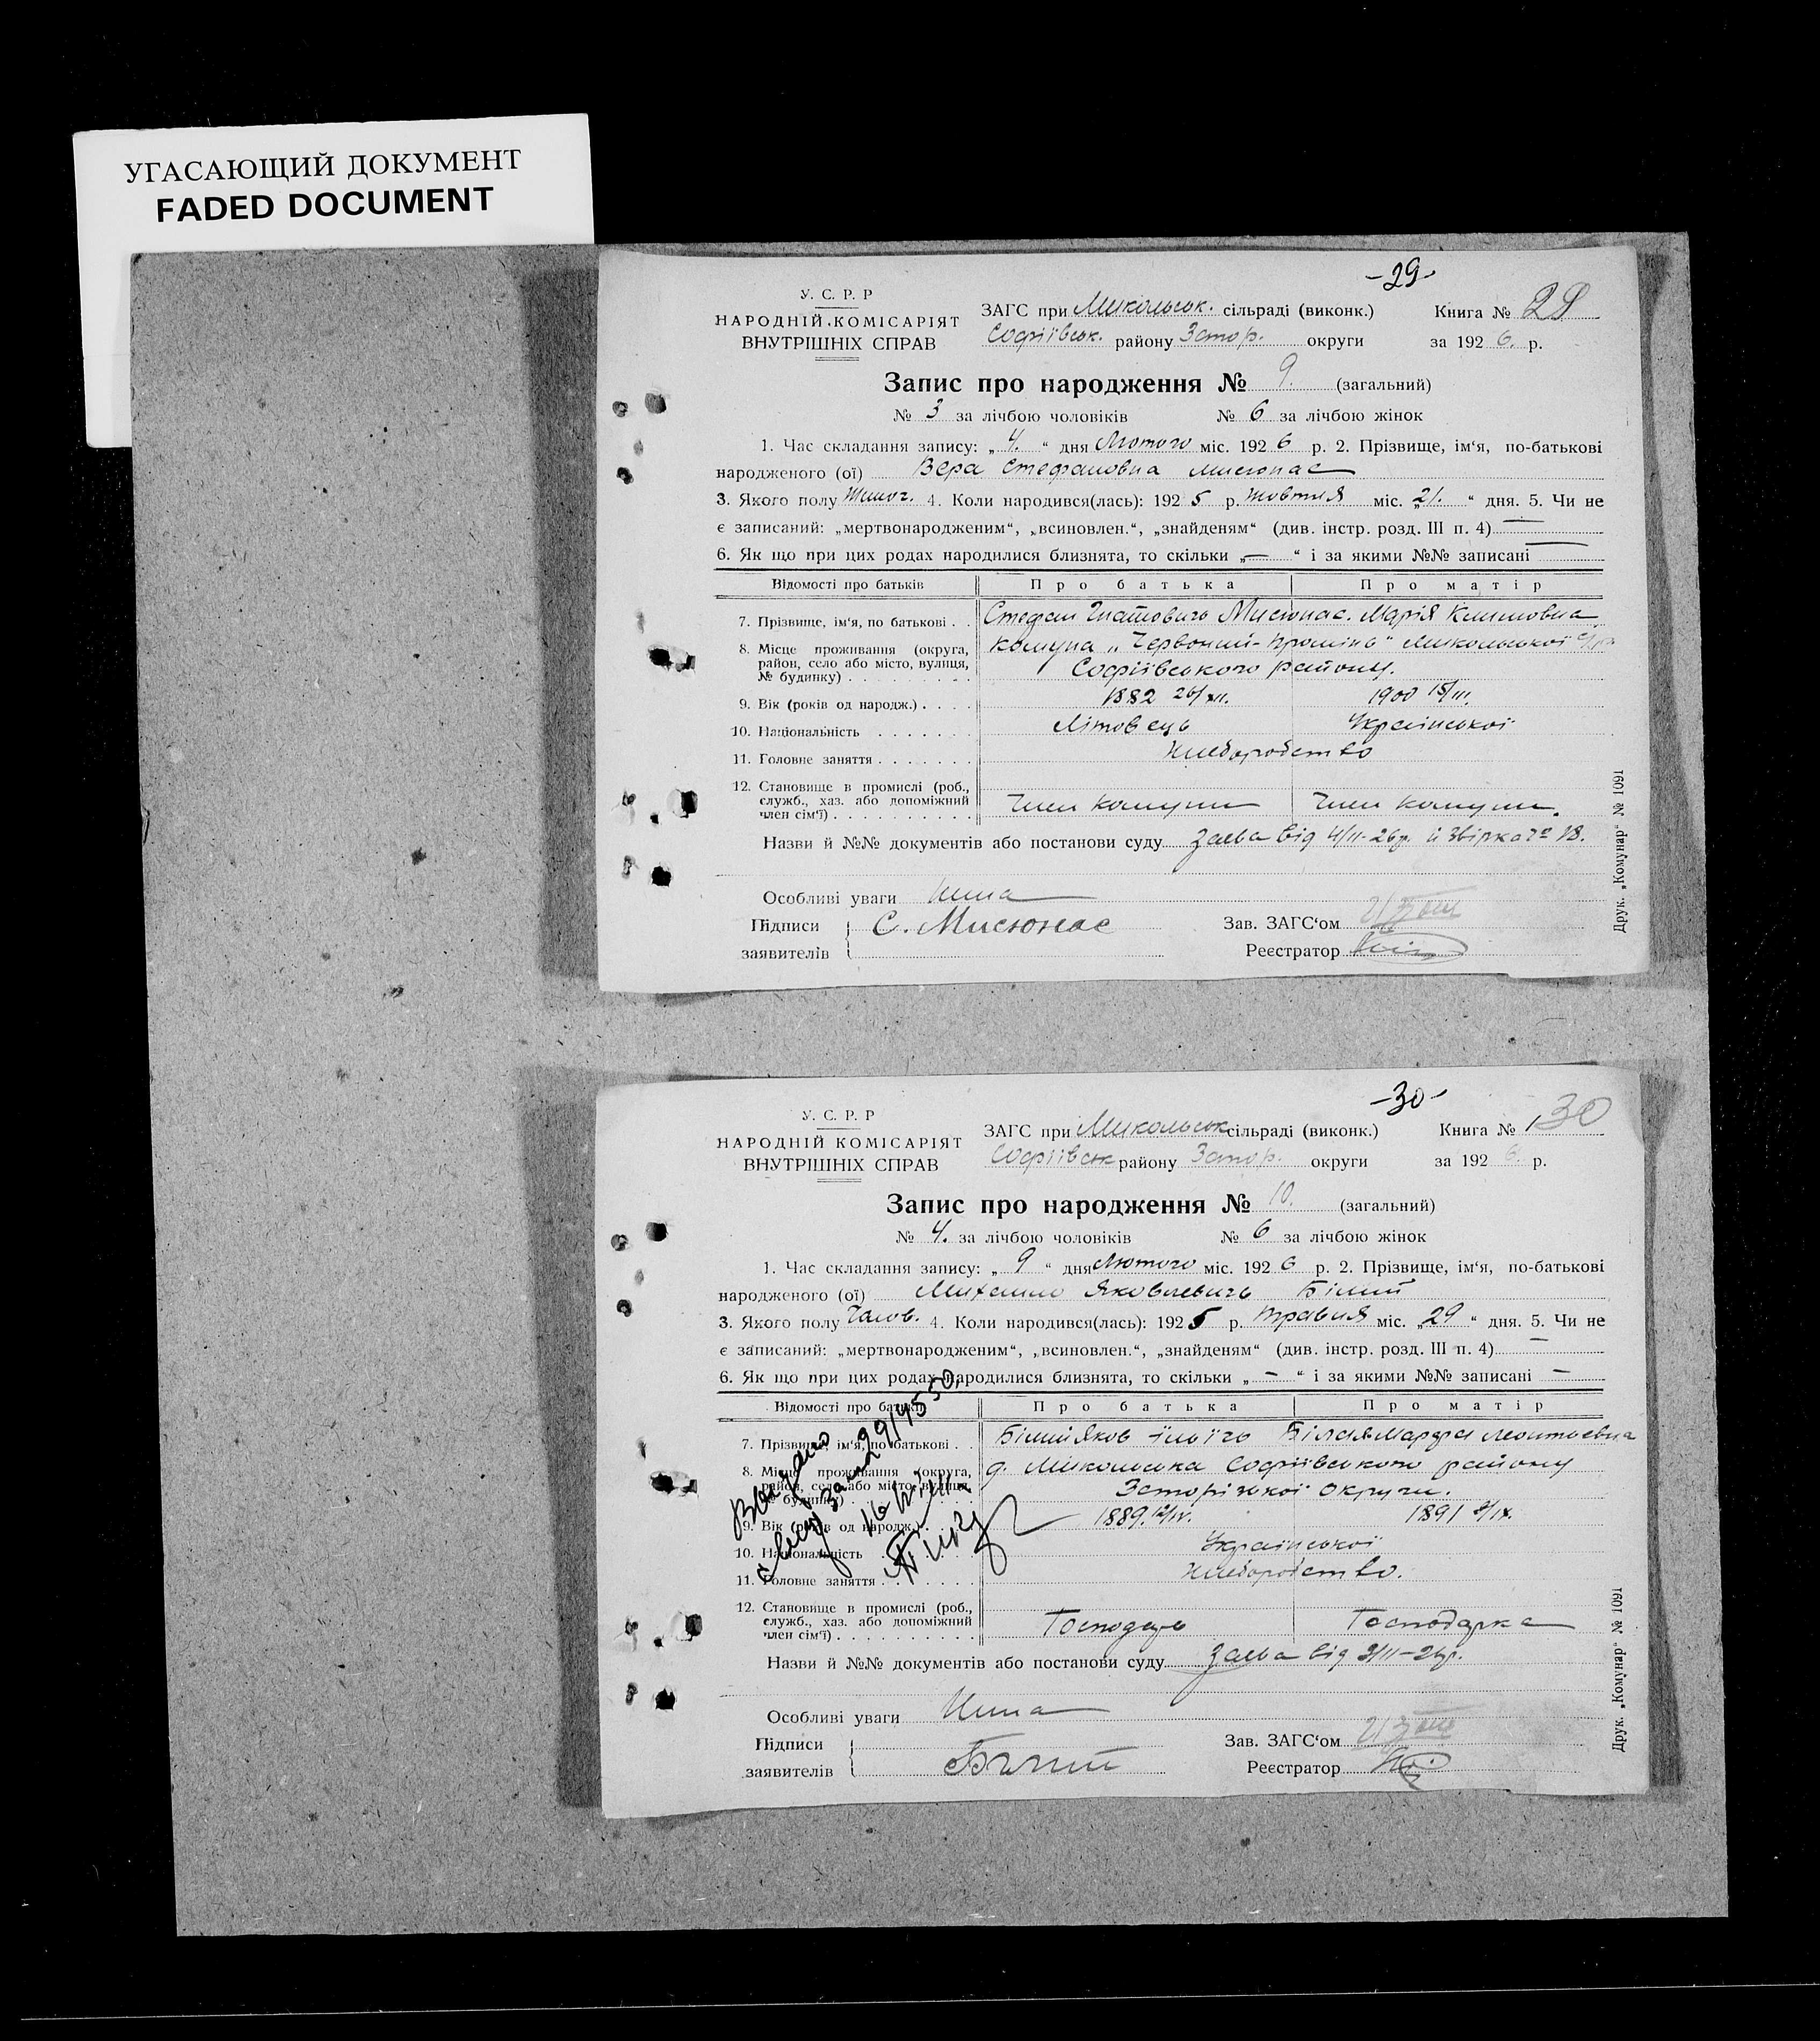 УГАСАЮЩИЙ ДОКУМЕНТ
FADED DOCUMENT
-29-
У. С. Р. Р
НАРОДНІЙ КОМІСАРІЯТ
ВНУТРІШНІХ СПРАВ
ЗАГС при Микольськ. сільраді (виконк.)
Книга №
Софіївськ. району Запор. округи
за 192 6. р.
Запис про народження № 9. (загальний)
№ 3 за лічбою чоловіків № 6 за лічбою жінок
1. Час складання запису: „ 4. “ дня Лютого міс. 192 6 р. 2. Прізвище, ім‘я, по-батькові
народженого (ої) Вера Стефановна Мисюнас
3. Якого полу Жіноч. 4. Коли народився(лась): 192 5 р. жовтня міс. „21. “ дня. 5. Чи не
є записаний: „мертвонародженим“, „всиновлен.“, „знайденям“ (див. інстр. розд. III п. 4) —
6. Як що при цих родах народилися близнята, то скільки „ — “ і за якими №№ записані —
Відомості про батьків Про батька Про матір
7. Прізвище, ім‘я, по батькові . . Стефан Гнатовичь Мисюнас. Марія Климовна
8. Місце проживання (округа,
район, село або місто, вулиця,
№ будинку) . . . . . . . . .
комуна „Червоний-Промінь“ Микольської с/р
Софіївського району.
9. Вік (років од народж.) . . . . 1882 26/XII. 1900 15/III.
10. Національність . . . . . . . Літовець Української
11. Головне заняття . . . . . . . Хлеборобство
12. Становище в промислі (роб.,
служб., хаз. або допоміжний
член сім‘ї) . . . . . . . . . .
Член комуни Член комуни.
Назви й №№ документів або постанови суду Заява від 4/II-26р. й звірка № 18.
Особливі уваги Нима
Підписи С. Мисюнас
заявителів
Зав. ЗАГС‘ом
Реєстратор
Друк. „Комунар“ № 1091
-30-
У. С. Р. Р
НАРОДНІЙ КОМІСАРІЯТ
ВНУТРІШНІХ СПРАВ
ЗАГС при Микольськ сільраді (виконк.)
Книга № 30
Софіївськ району Запор. округи
за 192 6. р.
Запис про народження № 10. (загальний)
№ 4. за лічбою чоловіків № 6 за лічбою жінок
1. Час складання запису: „ 9 “ дня Лютого міс. 192 6 р. 2. Прізвище, ім‘я, по-батькові
народженого (ої) Михаило Яковлевичь Білий
3. Якого полу Чолов. 4. Коли народився(лась): 192 5 р. травня міс. „29 “ дня. 5. Чи не
є записаний: „мертвонародженим“, „всиновлен.“, „знайденям“ (див. інстр. розд. III п. 4) —
6. Як що при цих родах народилися близнята, то скільки „ — “ і за якими №№ записані —
Відомості про батьків Про батька Про матір
7. Прізвище, ім‘я, по батькові . . Білий Яков Ільїчь Білая Марфа Леонтьєвна
8. Місце проживання (округа,
район, село або місто, вулиця,
№ будинку) . . . . . . . . .
Микольська Софіївського району
Запорізької округи.
9. Вік (років од народж.) . . . . 1889. 1891
10. Національність . . . . . . . Української
11. Головне заняття . . . . . . . Хлеборобство.
12. Становище в промислі (роб.,
служб., хаз. або допоміжний
член сім‘ї) . . . . . . . . . .
Господарь Господарка
Назви й №№ документів або постанови суду Заява від 9/II-26р.
Особливі уваги Нима
Підписи Білий
заявителів
Зав. ЗАГС‘ом
Реєстратор
Друк. „Комунар“ № 1091